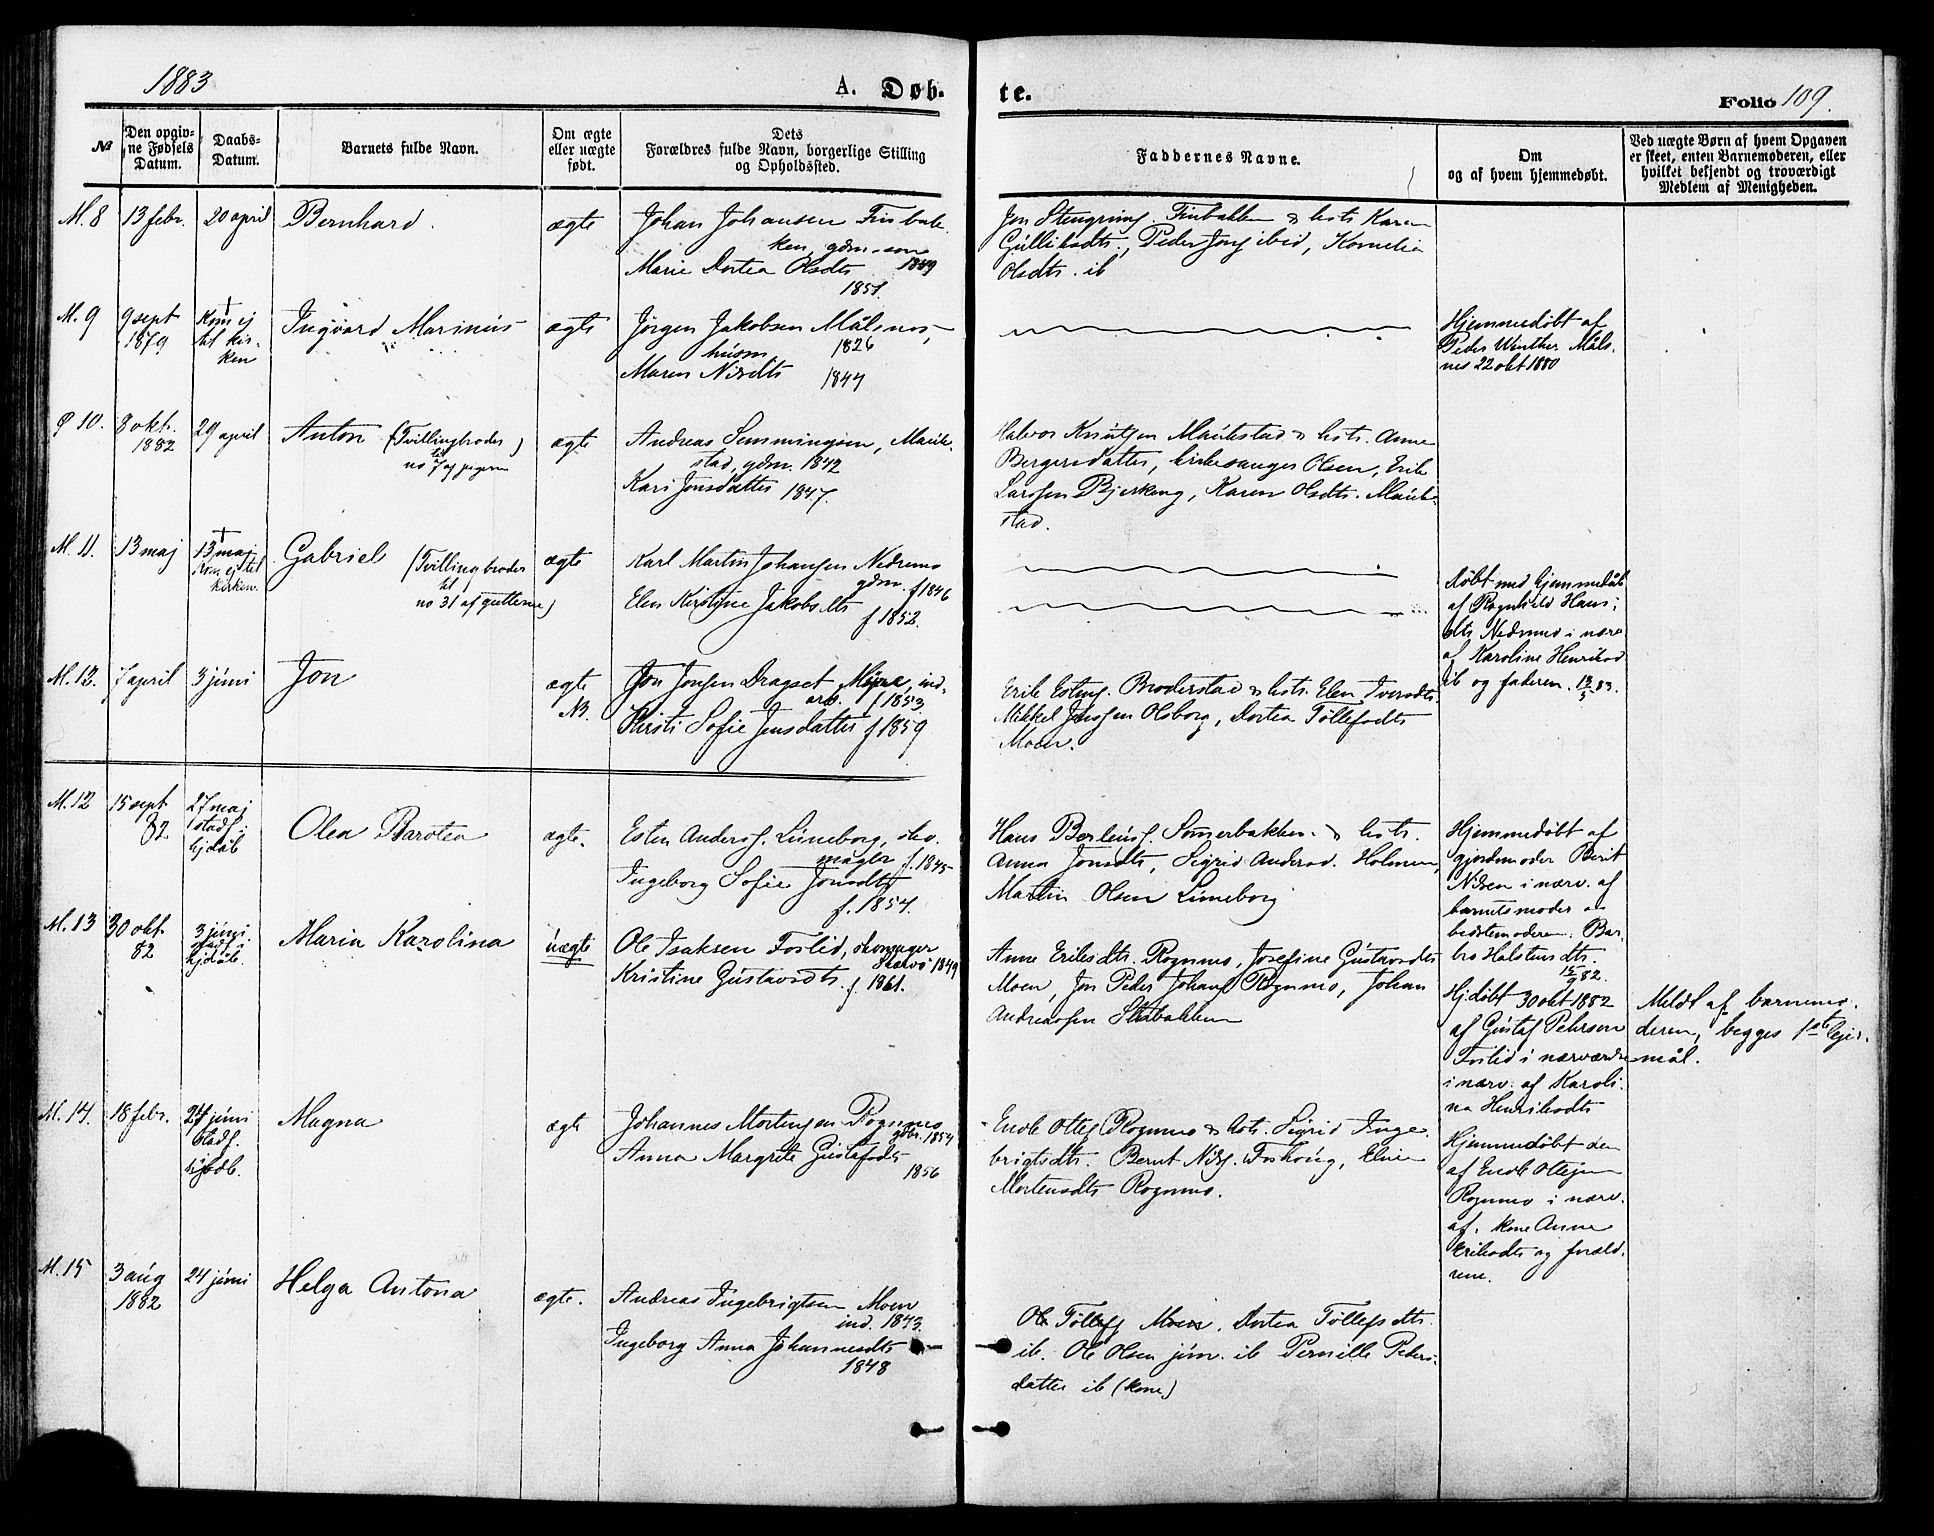 1883
A. Døb-
te.
Folio 109.
№
Den opgiv-
ne Fødsels
Datum.
Daabs-
Datum.
Barnets fulde Navn.
Om ægte
eller uægte
født.
Dets
Forældres fulde Navn, borgerlige Stilling
og Opholdssted.
Faddernes Navne.
Om
og af hvem hjemmedøbt.
Ved uægte Børn af hvem Opgaven
er skeet, enten Barnemoderen, eller
hvilket bekjendt og troværdigt
Medlem af Menigheden.
M. 8
13 febr.
20 april
Bernhard.
ægte
Johan Johansen Finbak-
ken, gdm.søn
1849
Marie Dortea Olsdtr
1851.
Jon Stengrims. Finbakken & hstr Karen
Gulliksdtr, Peder Jonss ibid, Kornelia
Olsdtr. ib
M. 9
9 sept
1879
†
Kom ej
til kir-
ken
Ingvard Marinus
ægte
Jørgen Jakobsen Målsnes,
husm. 1826
Maren Nilsdtr 1844
Hjemmedøbt af
Peder Winther Måls-
nes 22 okt 1880
Ø 10.
8 okt.
1882
29 april
Anton (Tvillingbroder
til
no 7 af pigerne)
ægte
Andreas Simmingsen, Mauk-
stad, gdm. 1842
Kari Jonsdatter 1847.
Halvor Knutsen Maukstad & hstr. Anne
Bergersdatter, kirkesanger Olsen, Erik
Larssen Bjerkeng, Karen Olsdtr. Mauk-
stad.
M. 11.
13 maj
†
13 maj
Kom ej til
kirken.
Gabriel (Tvillingbroder
til
no 31 af gutterne)
ægte
Karl Martin Johansen Nedremo
gdm. f 1846
Elen Kirstine Jakobsdtr
f 1852.
døbt med hjemmedåb
af Ragnhild Hans-
dtr Nedremo i nærv.
af Karoline Henriksd
ib og faderen. 13/5 83.
M. 12.
7 april
3 juni
Jon
ægte
NB.
Jon Jonsen Dragset Moen, ind.
arb. f 1853
Kirsti Sofie Jensdatter f 1859
Erik Estens. Broderstad & hstr. Elen Iversdtr.
Mikkel Jenssen Olsborg, Dortea Tøllefsdtr
Moen.
M. 12
15 sept
82
27 maj
stadf.
hjdåb
Olea Barotea
ægte.
Esten Anderss. Luneborg, sko-
mager f. 1845
Ingeborg Sofie Jonsdtr
f. 1854.
Hans Berlius. Sømerbakken & hstr.
Anna Jonsdtr, Sigrid Andersd. Holmen,
Martin Olsen Luneborg
Hjemmedøbt af
gjordemoder Berit
Nilsen i nærv. af
barnetsmoder og
bedstemoderen. Bar-
bro Halstensdtr.
15/9 82.
M. 13
30 okt.
82
3 juni
stadf.
hjdåb.
Maria Karolina
uægte
Ole Isaksen Foslid, skomager
1849
Kristine Gustavsdtr. f. 1861.
Anne Eriksdtr. Rognmo, Josefine Gustavsdtr
Moen, Jon Peder Johans Rognmo, Johan
Andreassen
Hjdøbt 30 okt 1882
af Gustaf Pehrson
Foslid i nærværelse
i nærv. af Karoli-
na Henriksdtr
Meldt af barnemo-
deren, begges 1ste lejer-
mål.
M. 14.
18 febr.
24 juni
stadf.
hjdåb.
Magna
ægte
Johannes Mortensen Rognmo
gdbr. 1854
Anna Margrete Gustafsdtr
1856
Endle Ottes Rognmo & hstr. Sigrid Inge-
brigtsdtr. Bernt Nilss. Foshaug, Eline
Mortensdtr Rognmo.
Hjemmedøbt den
af Endle Ottesen
Rognmo i nærv.
af. kone Anne
Eriksdtr og foræld-
rene.
M. 15
3 aug
1882
24 juni
Helga Antona
ægte.
Andreas Ingebrigtsen Moen
ind. 1843.
Ingeborg Anna Johannesdtr
1848
Ole Tøllefs Moen. Dortea Tøllefsdtr.
ib. Ole Olsen jun. ib Pernille Peders-
datter ib (kone)